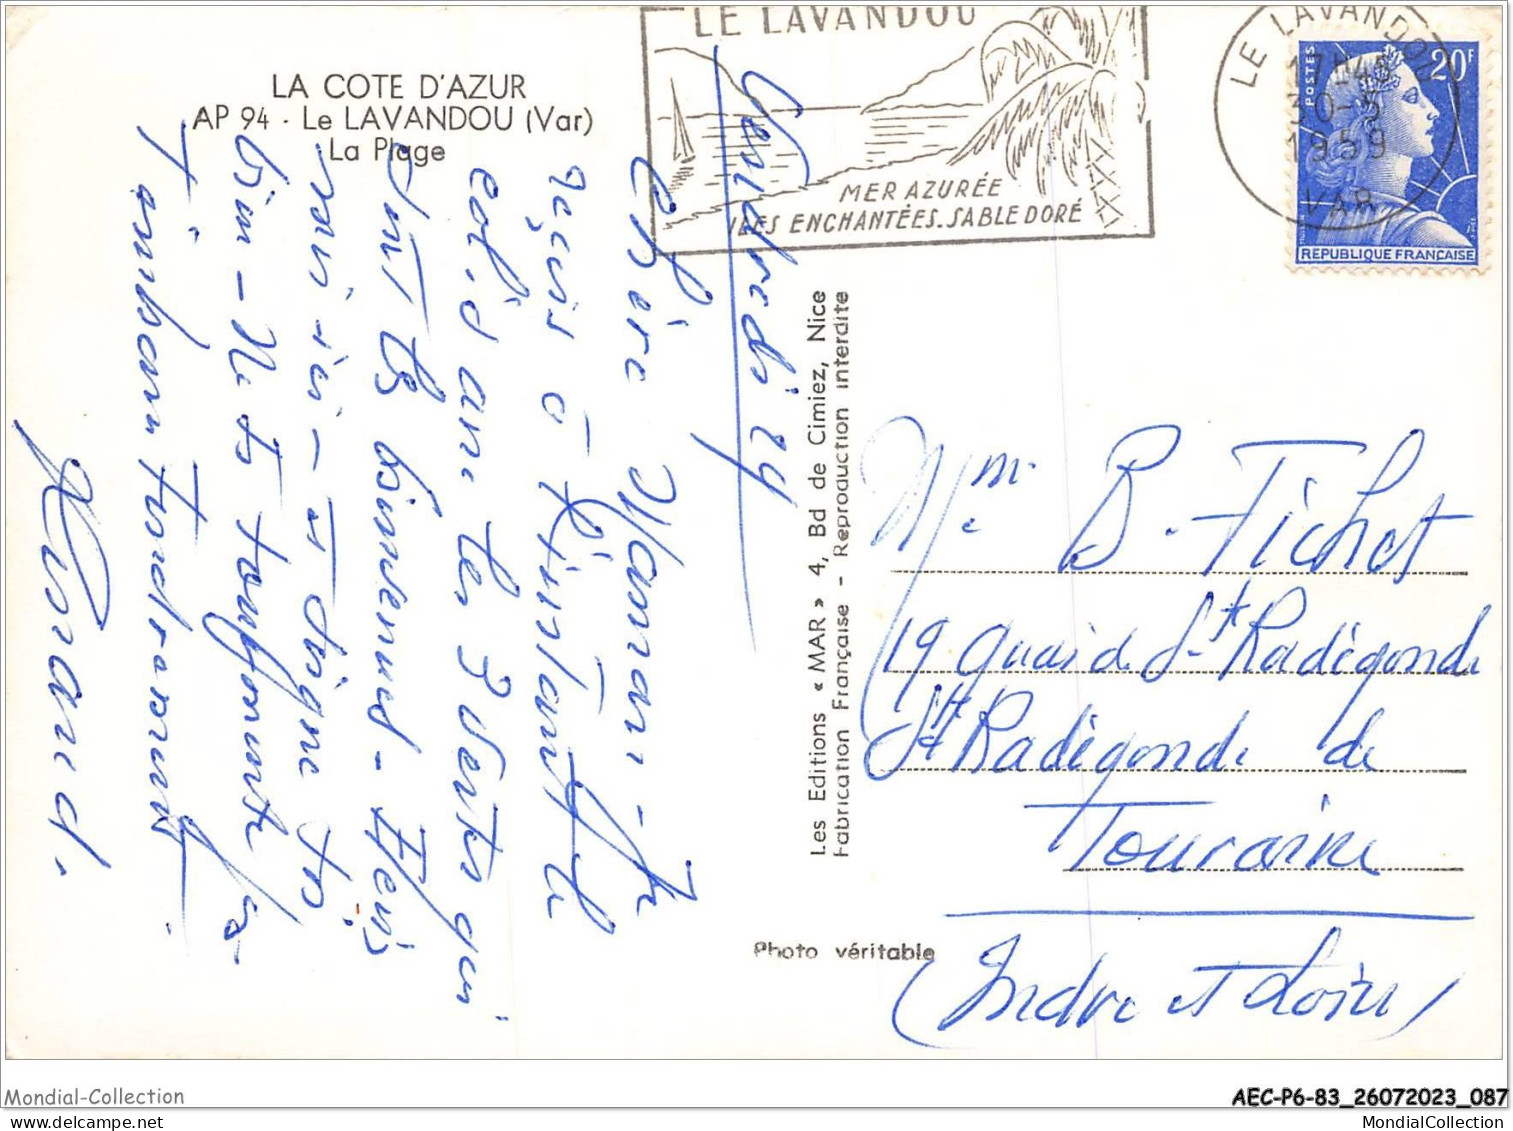 LA COTE D'AZUR
AP 94 - Le LAVANDOU (Var)
La Plage
LE LAVANDOU
MER AZURÉE
ILES ENCHANTÉES. SABLE DORÉ
LE LAVANDOU
30-5
1959
VAR
POSTES
20F
REPUBLIQUE FRANÇAISE
Vendredi 29
Chère Maman - Je
reçois à l'instant le
colis avec les 3 vestes qui
sont les bienvenues -
bien - Ne te tourmente pas
T'embrasse tendrement
Les Editions « MAR » 4, Bd de Cimiez, Nice
Fabrication Française - Reproduction interdite
Photo véritable
Mme B. Fichet
19 Quai de Ste Radégonde
Ste Radégonde de
Touraine
(Indre et Loire)
Mondial-Collection
AEC-P6-83_26072023_087
MondialCollection